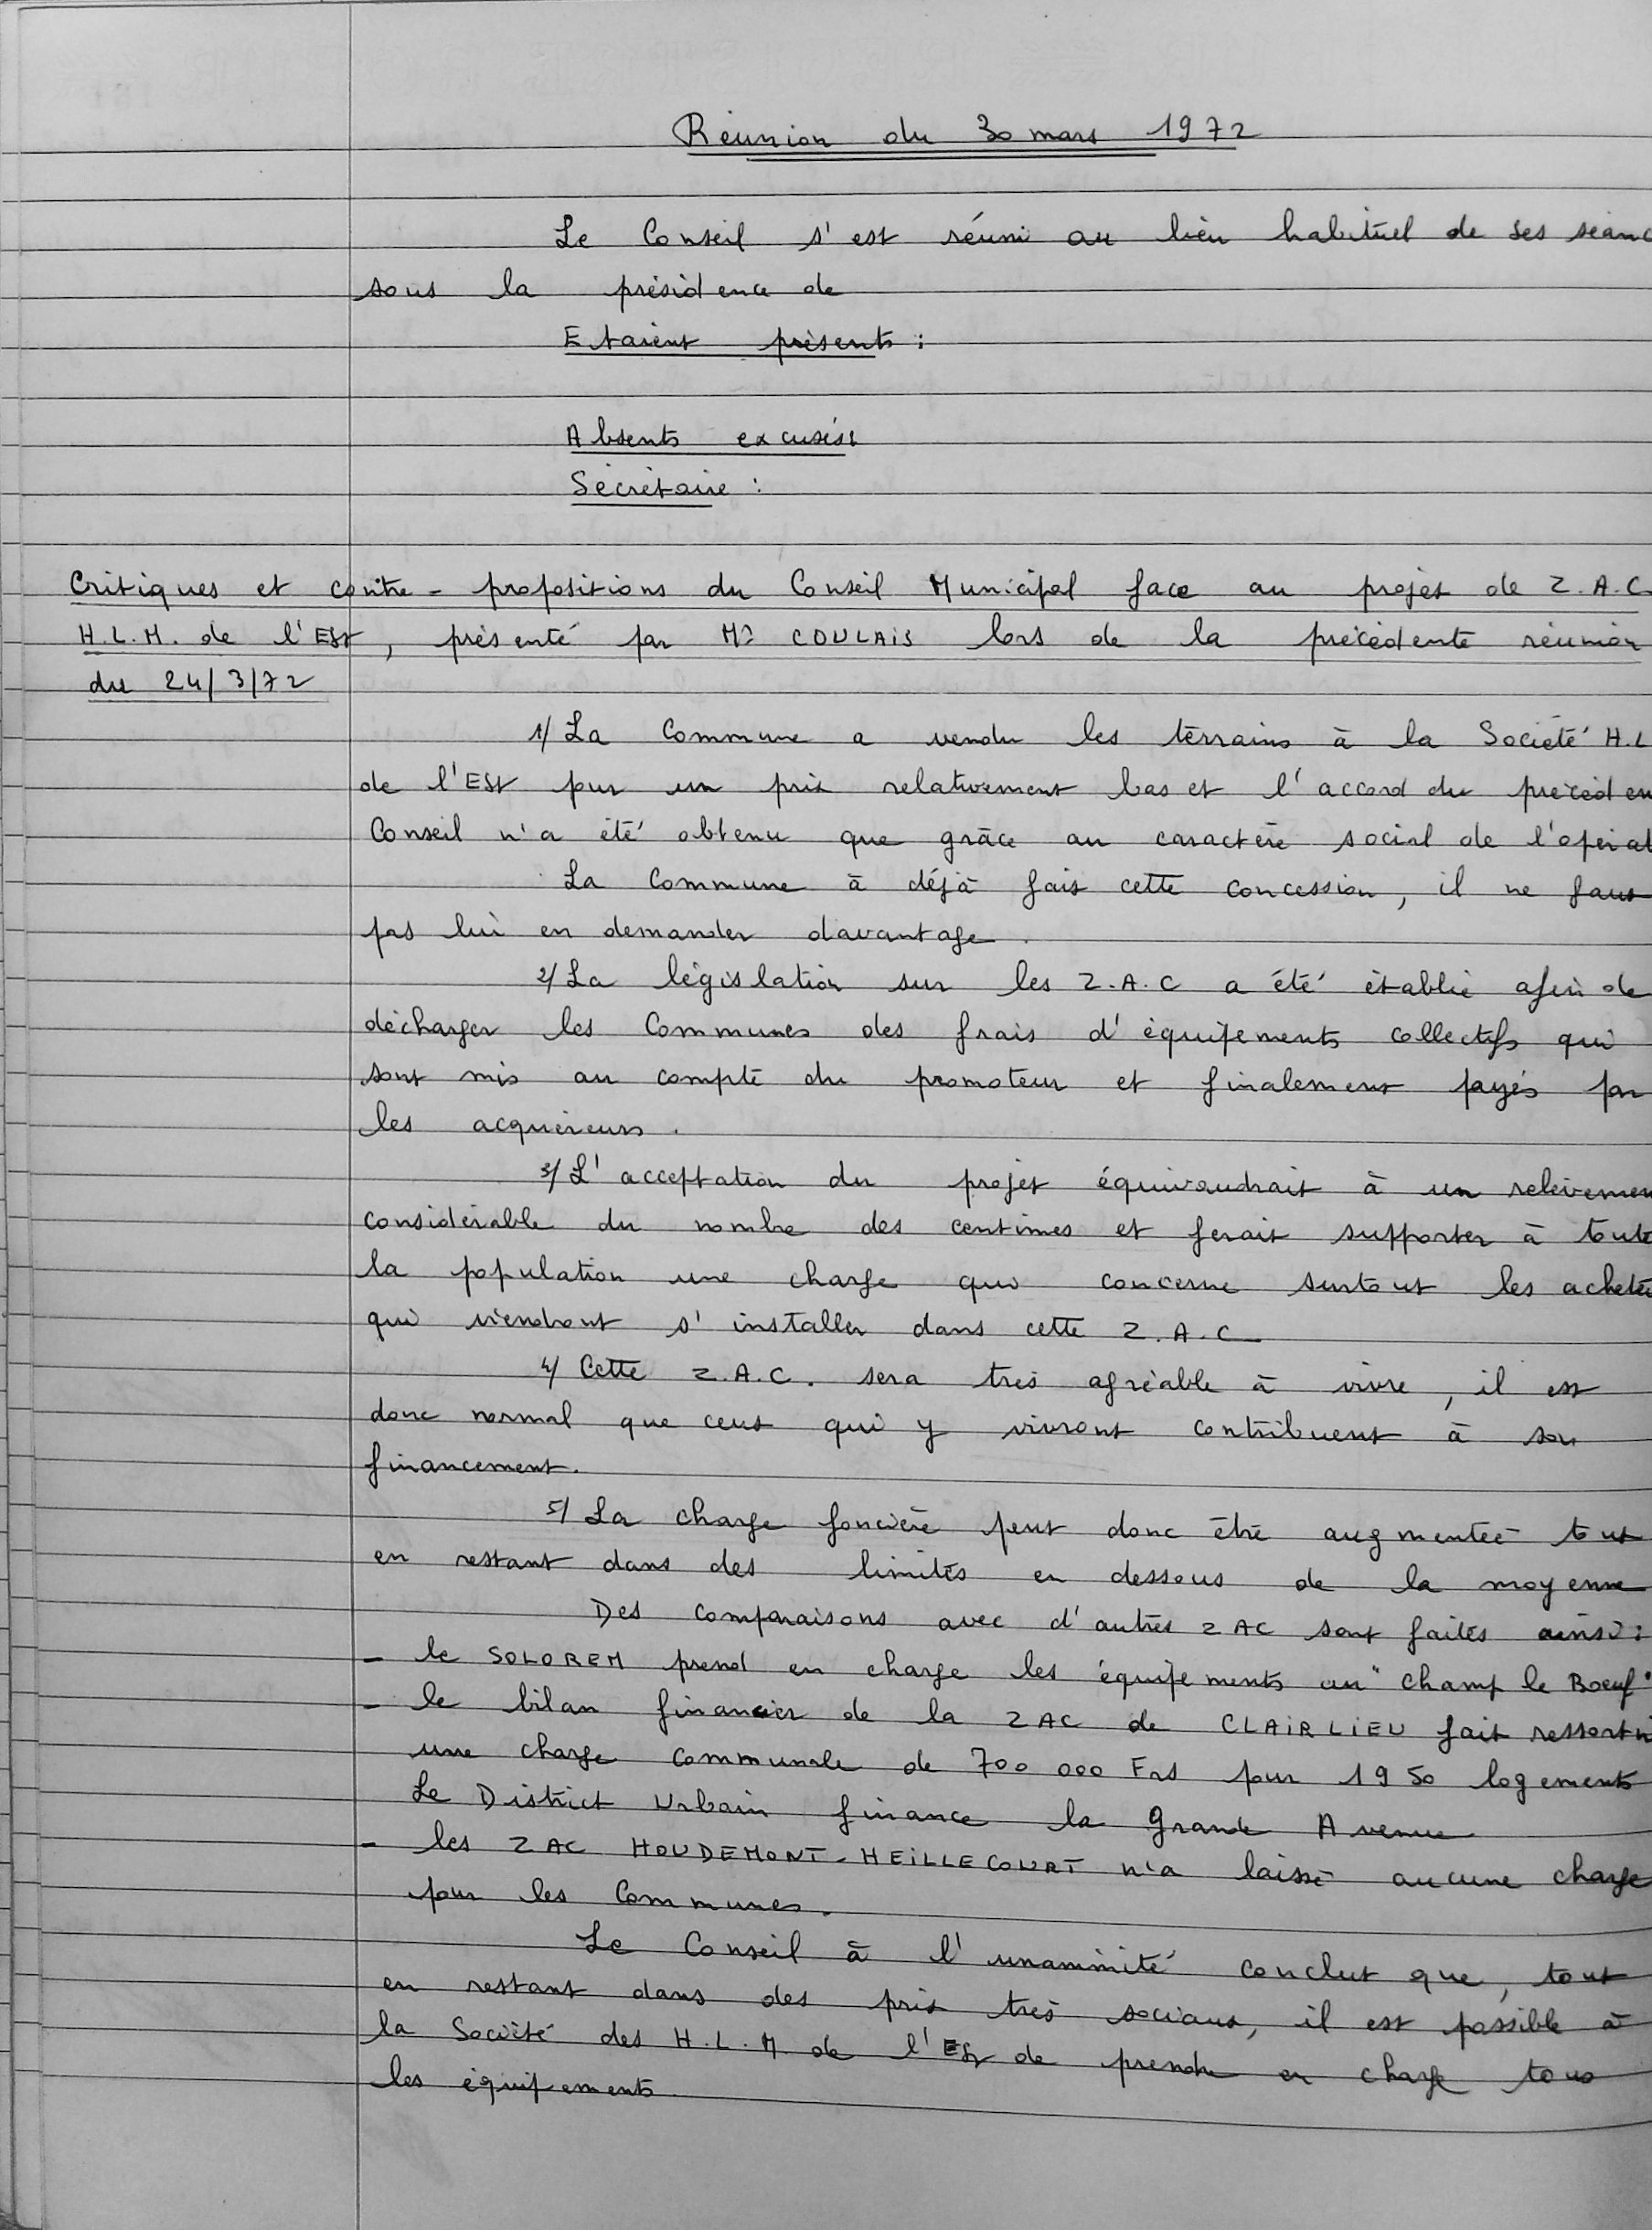 Réunion du 30 mars 1972
Le Conseil s'est réuni au lieu habituel de ses séanc
sous la présidence de
Etaient présents :
Absents excusés :
Secrétaire :
Critiques et contre-propositions du Conseil Municipal face au projet de Z.A.C.
H.L.M. de l'Est, présenté par Mr COULAIS lors de la précédente réunion
du 24/3/72
1/ La Commune a vendu les terrains à la Société H.L
de l'Est pour un prix relativement bas et l'accord du précéden
Conseil n'a été obtenu que grâce au caractère social de l'opérat
La Commune à déjà fait cette concession, il ne faut
pas lui en demander davantage.
2/ La législation sur les Z.A.C a été établie afin de
décharger les Communes des frais d'équipements collectifs qui
sont mis au compte du promoteur et finalement payés par
les acquéreurs.
3/ L'acceptation du projet équivaudrait à un relèvemen
considérable du nombre des centimes et ferait supporter à toute
la population une charge qui concerne surtout les achete
qui viendront s'installer dans cette Z.A.C
4/ Cette Z.A.C. sera très agréable à vivre, il est
donc normal que ceux qui y vivront contribuent à son
financement.
5/ La charge foncière peut donc être augmentée tout
en restant dans des limites en dessous de la moyenne
Des comparaisons avec d'autres ZAC sont faites ainsi :
- le SOLOREM prend en charge les équipements au "Champ le Boeuf"
- le bilan financier de la ZAC de CLAIRLIEU fait ressortir
une charge communale de 700 000 Frs pour 1950 logements
Le District Urbain finance la Grande Avenue
- les ZAC HOUDEMONT-HEILLECOURT n'a laissé aucune charge
pour les Communes.
Le Conseil à l'unanimité conclut que, tout
en restant dans des prix très sociaux, il est possible à
la Société des H.L.M. de l'Est de prendre en charge tous
les équipements